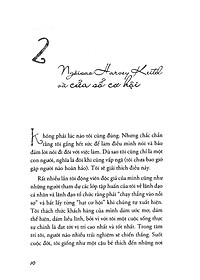 2
Ngài Harvey Keitel
và cửa sổ cơ hội
Không phải lúc nào tôi cũng đúng. Nhưng chắc chắn
rằng tôi gắng hết sức để làm điều mình nói và bảo
đảm lời nói đi đôi với việc làm. Dù sao tôi cũng chỉ là một
con người, nghĩa là đôi khi cũng vấp ngã (tôi chưa bao giờ
gặp người nào hoàn hảo). Tôi sẽ giải thích điều này.
Rất nhiều lần tôi động viên độc giả của mình cũng như
những người tham dự các lớp tập huấn của tôi về lãnh đạo
cá nhân và lãnh đạo tổ chức rằng phải "chạy thẳng vào nỗi
sợ" và bắt lấy những "hạt cơ hội" khi chúng tự xuất hiện.
Tôi thách thức khách hàng của mình dám ước mơ, dám
thể hiện, dám liều lĩnh, bởi vì với tôi một cuộc sống thực
sự chính là đi tới vị trí cao nhất và tốt nhất. Trong tâm
trí tôi, người nào nhiều trải nghiệm sẽ chiến thắng. Suốt
cuộc đời, tôi giống như một cậu bé thích đến những nơi
10